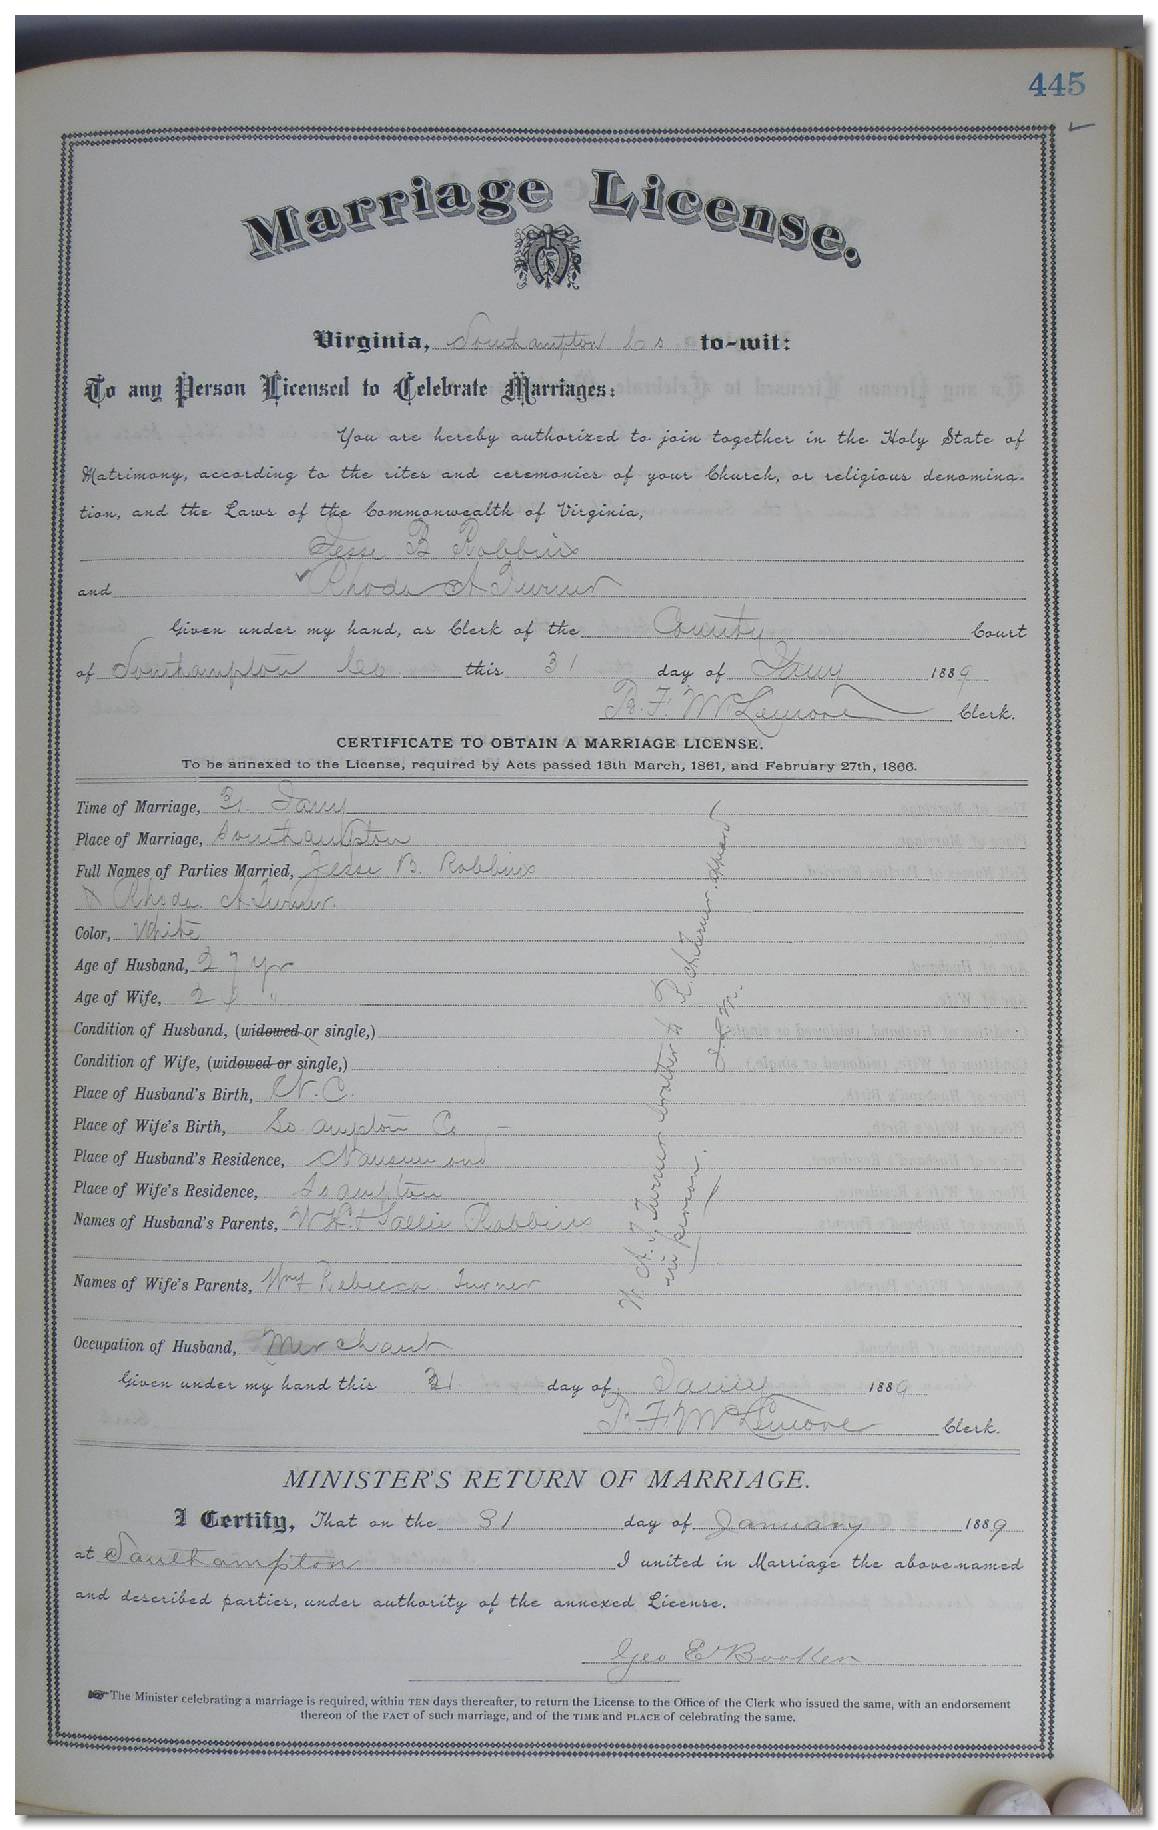 445
Marriage License.
Virginia, Southampton Co to-wit:
To any Person Licensed to Celebrate Marriages:
You are hereby authorized to join together in the Holy State of
Matrimony, according to the rites and ceremonies of your Church, or religious denomina-
tion, and the Laws of the Commonwealth of Virginia,
Jesse B Robbins
and Rhoda A Turner
Given under my hand, as Clerk of the County Court
of Southampton Co this 31 day of Jany 1889
R. F. McLemore Clerk.
CERTIFICATE TO OBTAIN A MARRIAGE LICENSE.
To be annexed to the License, required by Acts passed 15th March, 1861, and February 27th, 1866.
Time of Marriage, 31 Jany
Place of Marriage, Southampton
Full Names of Parties Married, Jesse B. Robbins
& Rhoda A Turner.
Color, White
Age of Husband, 27 yr
Age of Wife, 2 "
Condition of Husband, (widowed or single,)
Condition of Wife, (widowed or single,)
Place of Husband's Birth, N. C.
Place of Wife's Birth, So ampton Co
Place of Husband's Residence, Nansemond
Place of Wife's Residence, So ampton
Names of Husband's Parents, & Sallie Robbins
Names of Wife's Parents, Wm & Rebecca Turner
Occupation of Husband, Merchant
Given under my hand this 31 day of Jany 1889
R. F. McLemore Clerk.
W. A. J. Turner brother to R. A. Turner appeard
in person.
MINISTER'S RETURN OF MARRIAGE.
I Certify, That on the 31 day of January 1889
at Southampton I united in Marriage the above-named
and described parties, under authority of the annexed License.
Geo E Booker
The Minister celebrating a marriage is required, within TEN days thereafter, to return the License to the Office of the Clerk who issued the same, with an endorsement
thereon of the FACT of such marriage, and of the TIME and PLACE of celebrating the same.